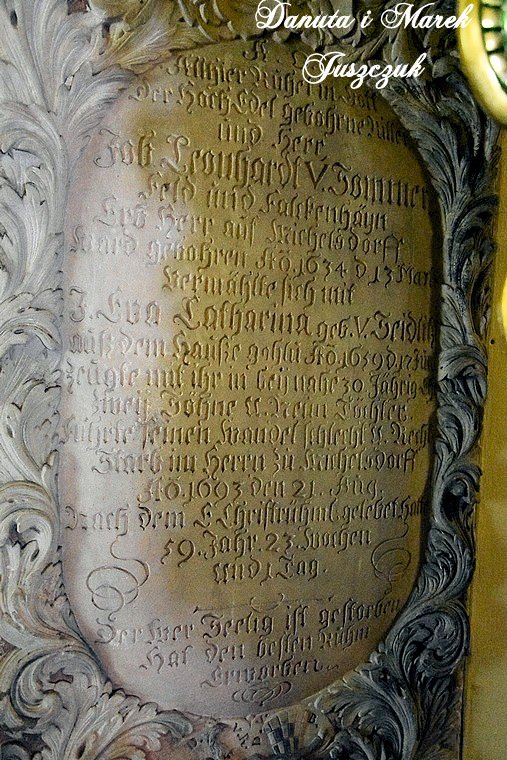 Danuta i Marek
Juszczuk
Allhier Ruhet in Gott
Der Hoch Edel gebohrne Ritter
und Herr
Leonhardt V. Sommer
Feld und Falckenhayn
Erb Herr auf Michelsdorff
Ward gebohren Aõ. 1634 d 13
Vermählte sich mit
J. Eva Catharina geb. V. Seidlitz
auß dem Hauße Aõ. 1659 d. 17
Zeugte mit ihr in bey nahe 30 Jährig
Zwey Söhne U. Neun Töchter.
führte seinen Wandel schlecht U. Recht
Starb im Herrn zu Michelsdorff
Aõ. 1693 den 21. Aug.
Nach dem E Christrühml. gelebet hatte
59. Jahr. 23. Wochen
und 1 Tag.
Der Wer Seelig ist gestorben
Hat den besten Ruhm
Erworben